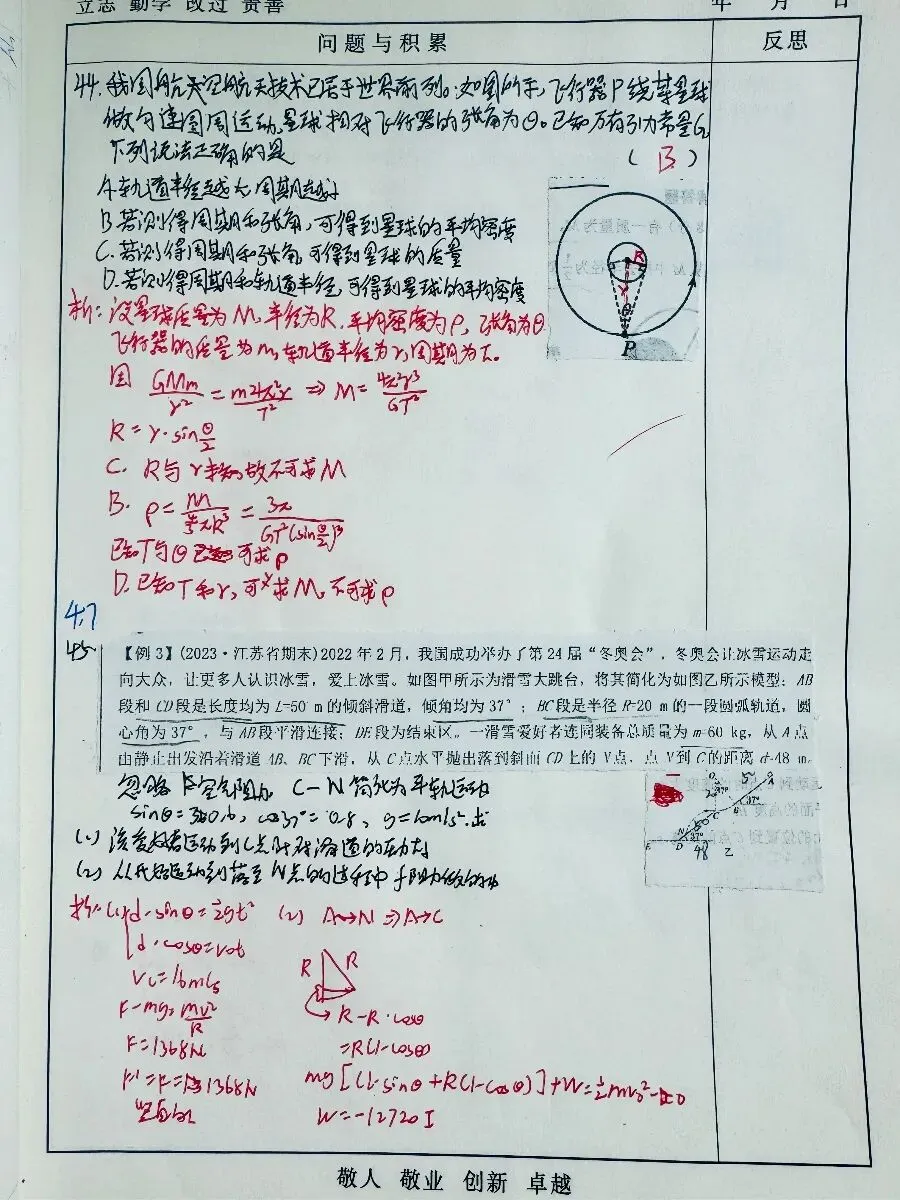 立志 勤学 改过 贵善
年 月 日
问题与积累
反思
44. 我国航天空航天技术已居于世界前列。如图所示,飞行器P绕某星球
做匀速圆周运动,星球相对飞行器的张角为θ。已知万有引力常量G,
下列说法正确的是 ( B )
A.轨道半径越大,周期越小
B.若测得周期和张角,可得到星球的平均密度
C.若测得周期和张角,可得到星球的质量
D.若测得周期和轨道半径,可得到星球的平均密度
R
r
θ
P
析:设星球质量为M,半径为R,平均密度为ρ,张角为θ
飞行器的质量为m,轨道半径为r,周期为T.
因 GMm/r² = m4π²r/T² ⇒ M = 4π²r³/GT²
R = r·sin θ/2
C. R与r未知,故不可求M
B. ρ = M/(4/3 πR³) = 3π/(GT²(sin θ/2)³)
已知T与θ 可求ρ
D. 已知T和r,可求M,不可求ρ
4.7
45
【例 3】(2023·江苏省期末)2022 年 2 月,我国成功举办了第 24 届“冬奥会”,冬奥会让冰雪运动走
向大众,让更多人认识冰雪,爱上冰雪。如图甲所示为滑雪大跳台,将其简化为如图乙所示模型:AB
段和 CD 段是长度均为 L=50 m 的倾斜滑道,倾角均为 37°;BC 段是半径 R=20 m 的一段圆弧轨道,圆
心角为 37°,与 AB 段平滑连接;DE 段为结束区。一滑雪爱好者连同装备总质量为 m=60 kg,从 A 点
由静止出发沿着滑道 AB、BC 下滑,从 C 点水平抛出落到斜面 CD 上的 N 点,点 N 到 C 的距离 d=48 m。
忽略 空气阻力 C-N 简化为平抛运动
sinθ=0.6, cos37°=0.8, g=10m/s².求
(1) 该爱好者运动到C点时对滑道的压力大
(2) 从开始运动到落至N点的过程中 f阻力做的功
析:(1) d·sinθ=½gt²
d·cosθ=v₀t
Vc=16m/s
F-mg=mv²/R
F=1368N
F'=F=1368N
竖直向下
(2) A→N ⇒A→C
R R
R-R·cosθ
=R(1-cosθ)
mg[(L·sinθ+R(1-cosθ)]+W=½mv₀²-0
W=-12720J
敬人 敬业 创新 卓越